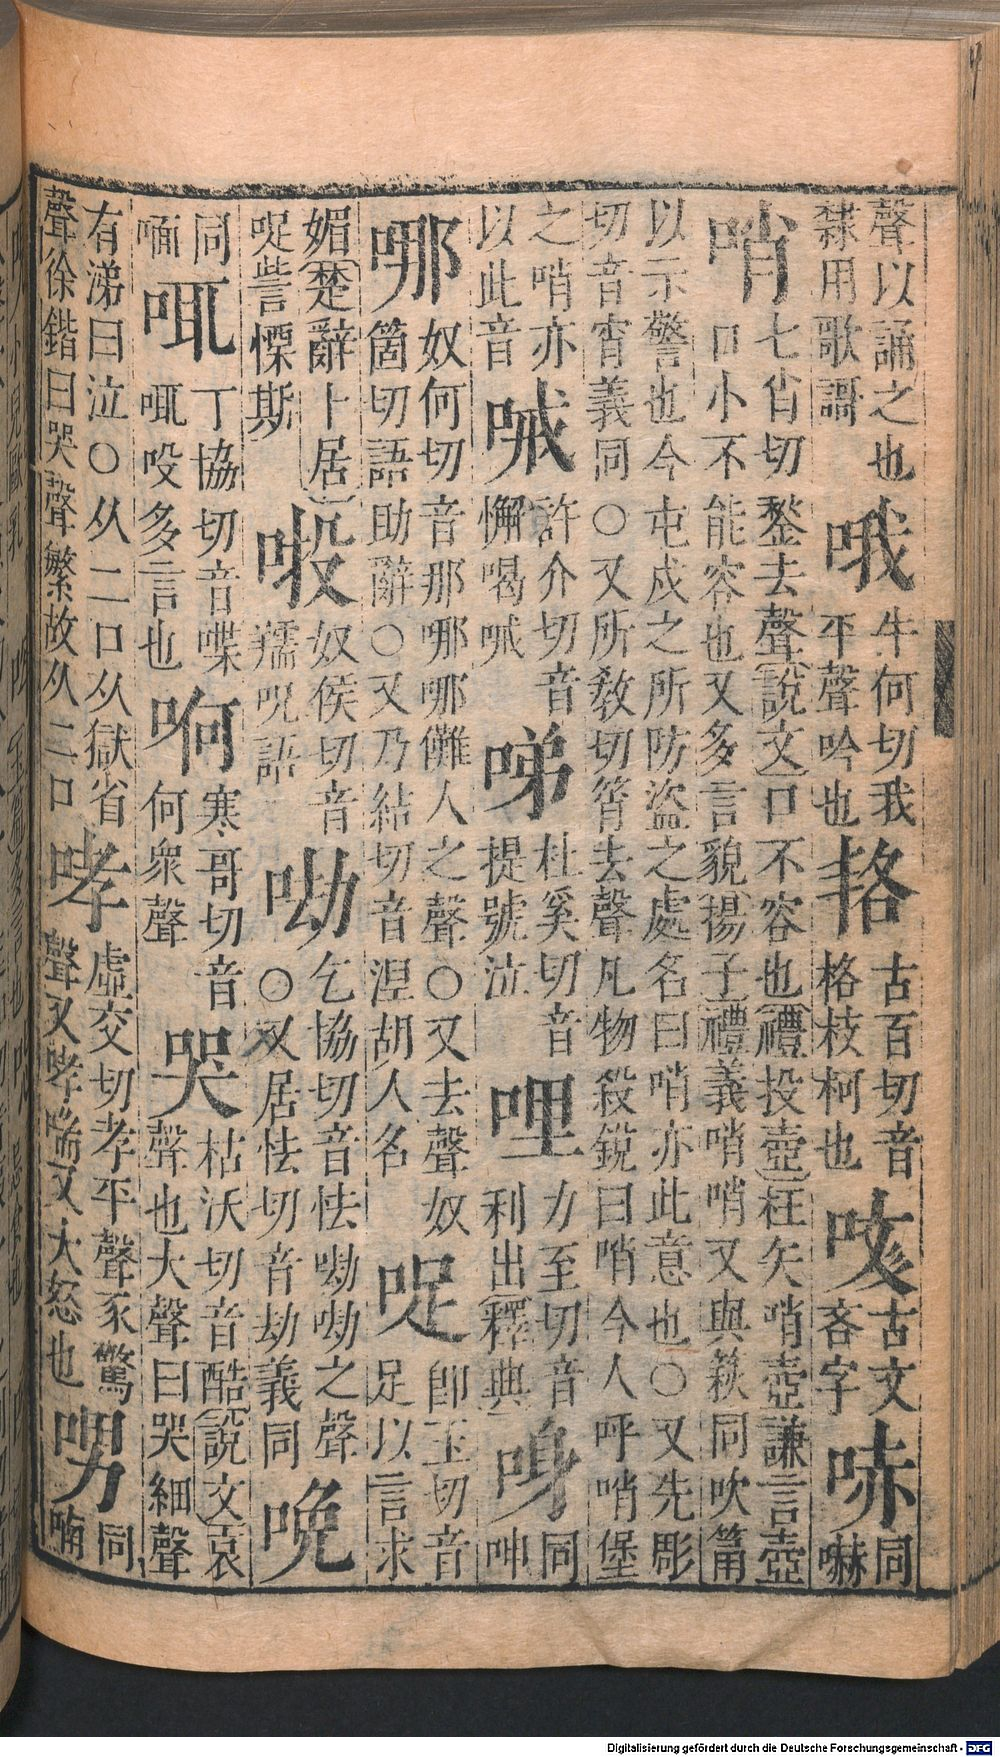 聲以誦之也隸用歌謌哦牛何切我平聲吟也古百切音格枝柯也㖁古文吝字哧同嚇
哨七肖切鍫去聲說文口不容也禮投壺枉矢哨壺謙言壺口小不能容也又多言貌揚子禮義哨哨又與同吹筩
以示警也今屯戍之所防盜之處名曰哨亦此意也○又先彫切音宵義同○又所教切筲去聲凡物殺銳曰哨今人呼哨堡
之哨亦以此音㖑許介切音懈喝㖑杜奚切音提號泣哩力至切音利出釋典同呻
哪奴何切音那哪哪儺人之聲○又去聲奴箇切語助辭○又乃結切音涅胡人名哫卽玉切音足以言求
媚楚辭卜居哫訾慄斯奴侯切音羺呪語乞協切音怯之聲○又居怯切音劫義同
同喕丁協切音喋多言也哬寒哥切音何衆聲哭枯沃切音酷說文哀聲也大聲曰哭細聲
有涕曰泣○从二口从獄省聲徐鍇曰哭聲繁故从二口哮虛交切孝平聲豕驚聲又哮喘又大怒也㖠同喃
Digitalisierung gefördert durch die Deutsche Forschungsgemeinschaft - DFG